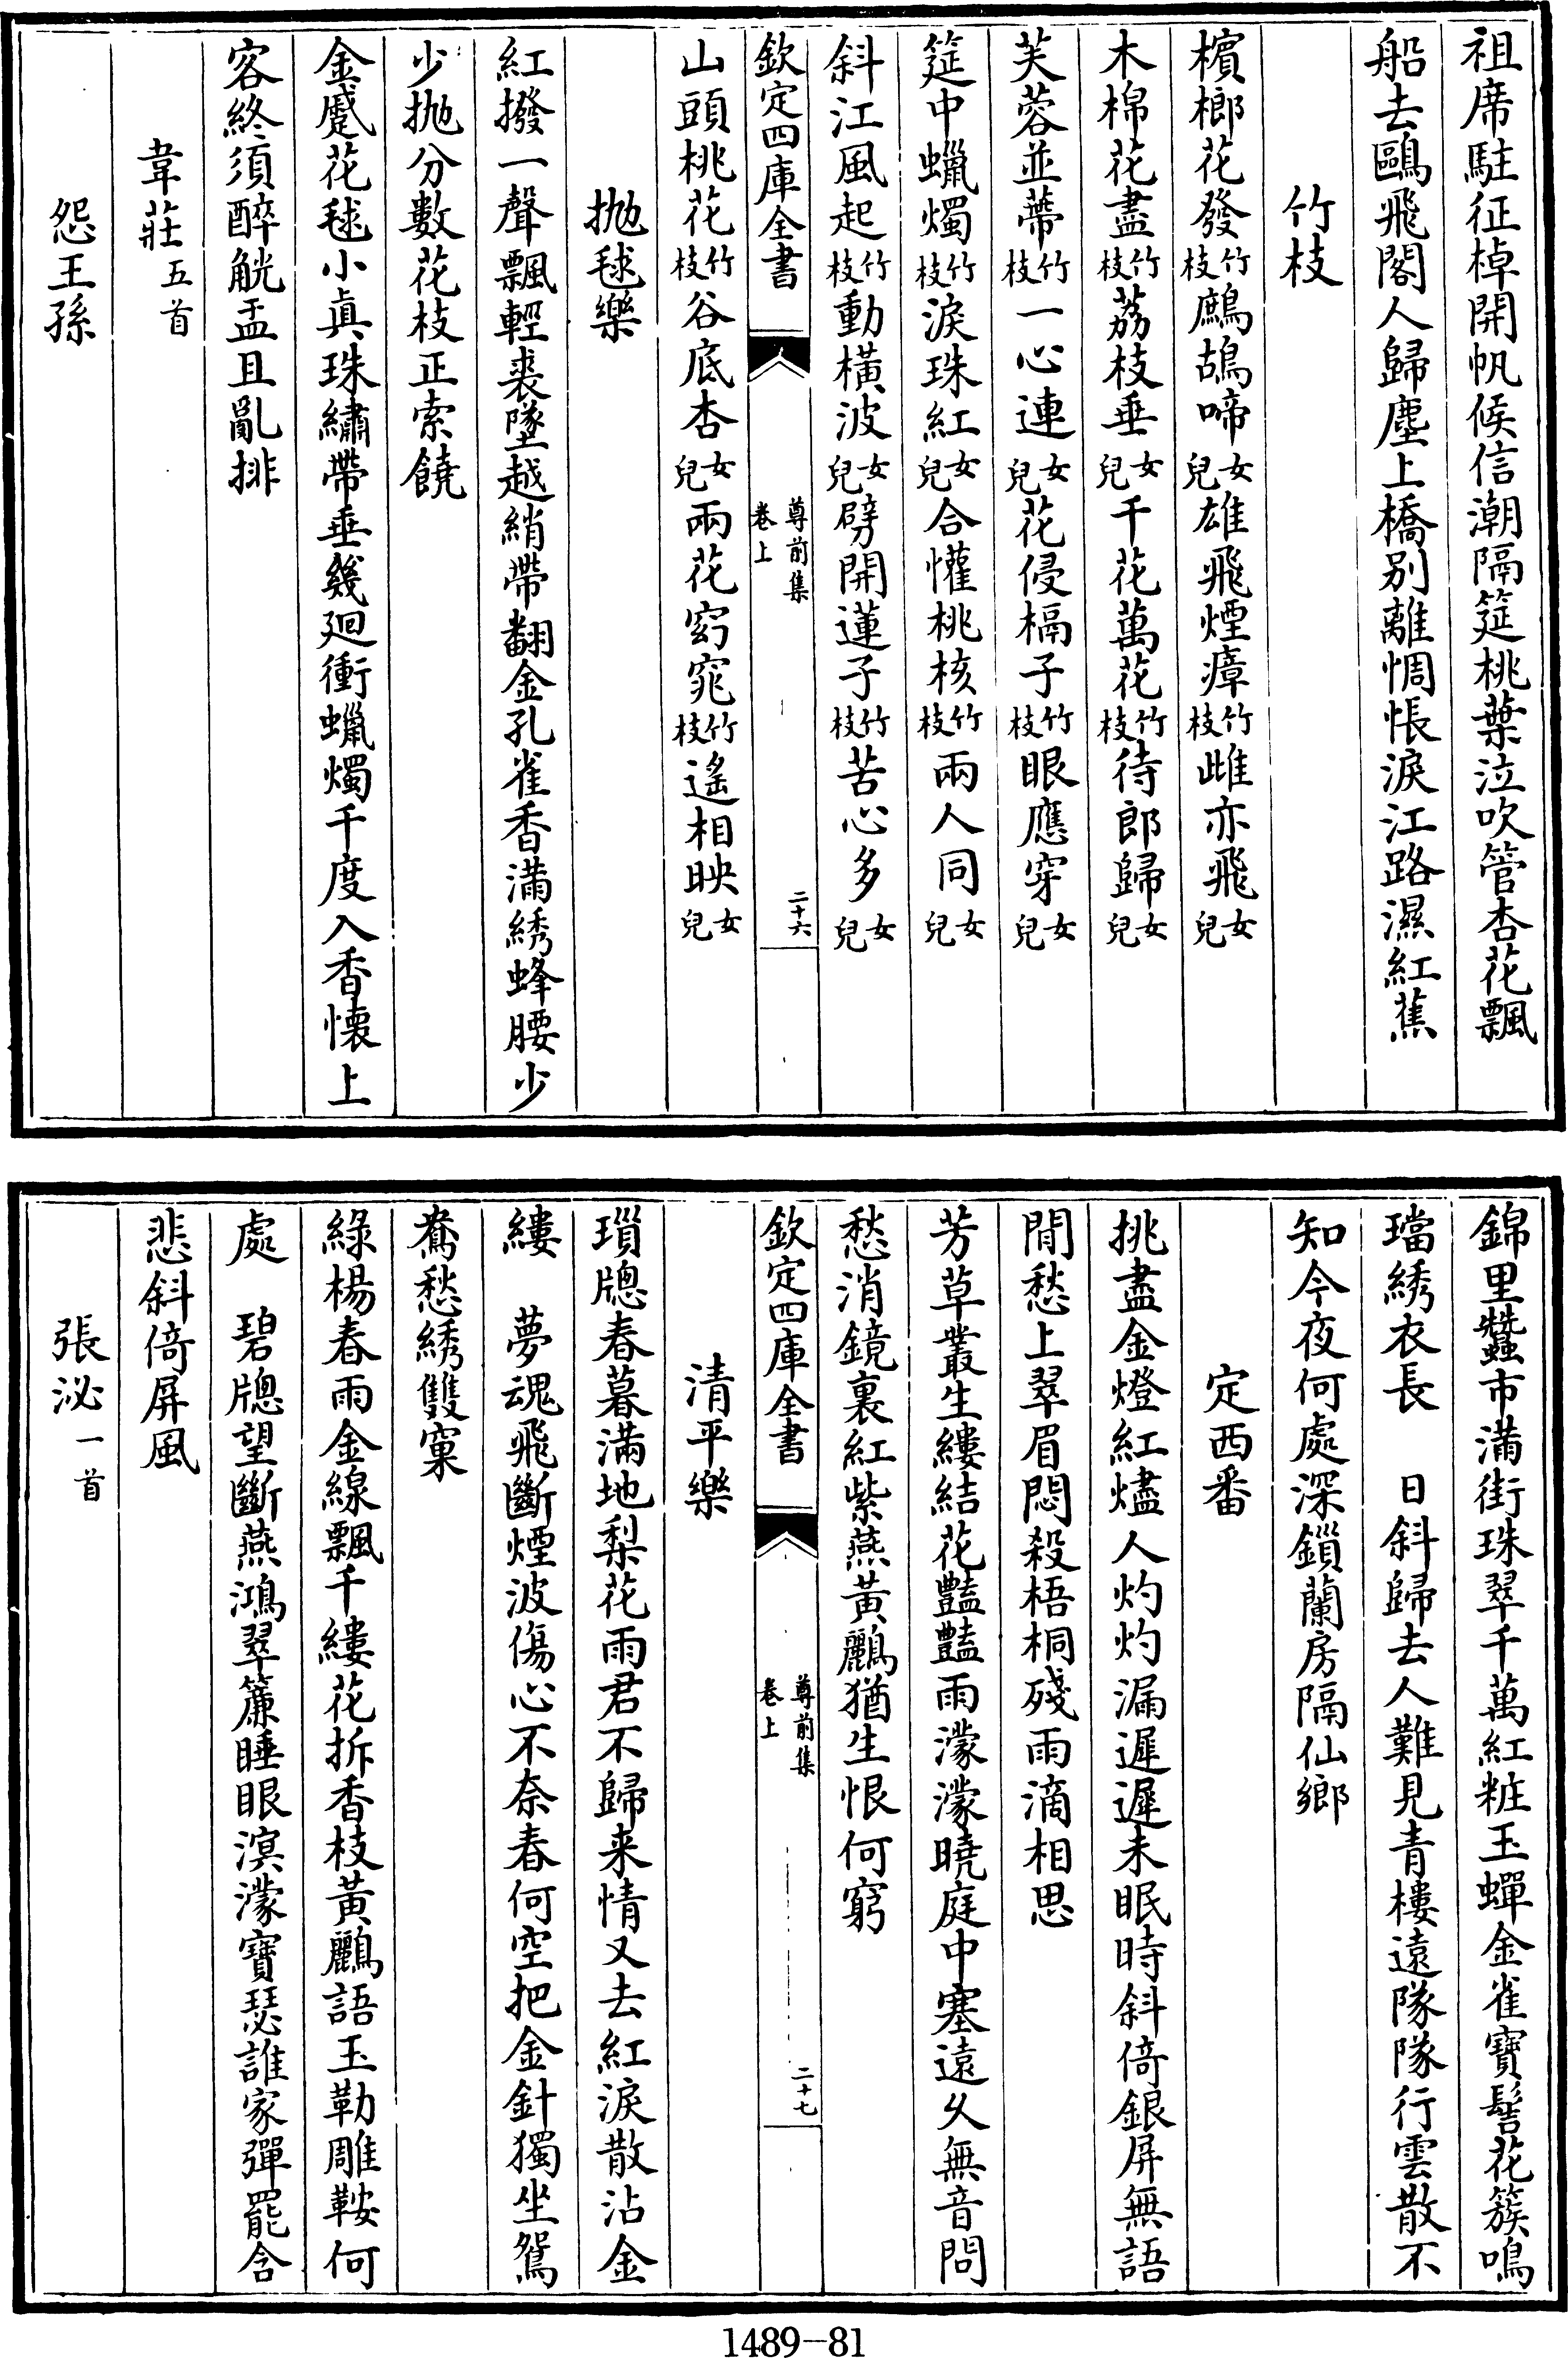 祖席駐征棹開帆候信潮隔筵桃葉泣吹管杏花飄
船去鷗飛閣人歸塵上橋别離惆悵淚江路濕紅蕉
竹枝
檳榔花發竹枝鷓鴣啼女兒雄飛煙瘴竹枝雌亦飛女兒
木棉花盡竹枝荔枝垂女兒千花萬花竹枝待郎歸女兒
芙蓉並蔕竹枝一心連女兒花侵槅子竹枝眼應穿女兒
筵中蠟燭竹枝淚珠紅女兒合懽桃核竹枝兩人同女兒
斜江風起竹枝動橫波女兒劈開蓮子竹枝苦心多女兒
欽定四庫全書 尊前集 卷上 二十六
山頭桃花竹枝谷底杏女兒兩花窈窕竹枝遙相映女兒
抛毬樂
紅撥一聲飄輕裘墜越綃帶翻金孔雀香滿綉蜂腰少
少抛分數花枝正索饒
金蹙花毬小真珠繡帶垂幾廻衝蠟燭千度入香懐上
客終須醉觥盂且亂排
韋莊五首
怨王孫
錦里蠶市滿街珠翠千萬紅粧玉蟬金雀寶髻花簇鳴
璫綉衣長 日斜歸去人難見青樓遠隊隊行雲散不
知今夜何處深鎖蘭房隔仙鄉
定西番
挑盡金燈紅燼人灼灼漏遲遲未眠時斜倚銀屏無語
閒愁上翠眉悶殺梧桐殘雨滴相思
芳草叢生縷結花豔豔雨濛濛曉庭中塞遠久無音問
愁消鏡裏紅紫燕黃鸝猶生恨何窮
欽定四庫全書 尊前集 卷上 二十七
清平樂
瑣牎春暮滿地梨花雨君不歸来情又去紅淚散沾金
縷 夢魂飛斷煙波傷心不奈春何空把金針獨坐鴛
鴦愁綉雙窠
綠楊春雨金線飄千縷花拆香枝黃鸝語玉勒雕鞍何
處 碧牎望斷燕鴻翠簾睡眼溟濛寶瑟誰家彈罷含
悲斜倚屏風
張泌一首
1489—81